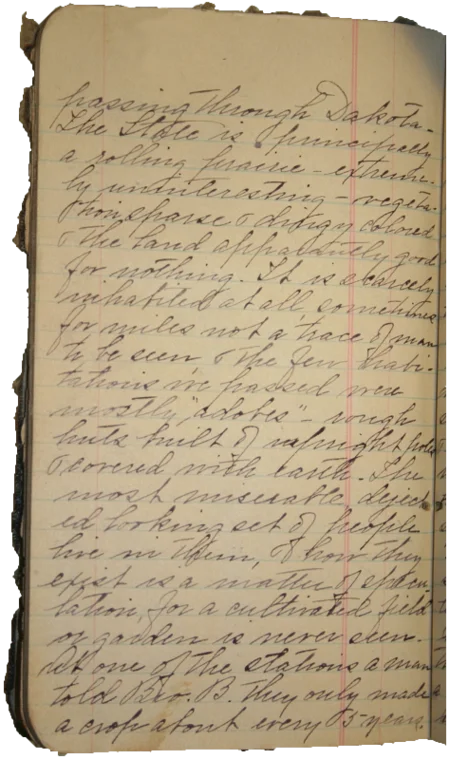 passing through Dakota -
The State is principally
a rolling prairie - extreme-
ly uninteresting - vegeta-
tion sparse & dingy colored
& the land apparantly good
for nothing. It is scarcely
inhabited at all, sometimes
for miles not a trace of man
to be seen & the few habi-
tations we passed were
mostly "adobes" - rough
huts built of upright poles
& covered with earth. The
most miserable deject-
ed looking set of people
live in them, & how they
exist is a matter of specu
lation, for a cultivated field
or garden is never seen -
At one of the stations a man
told Bro. B. they only made
a crop about every 5 years.